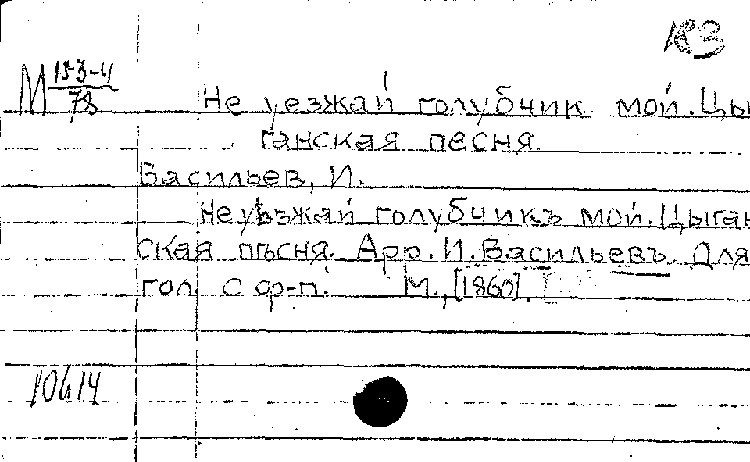 КЗ
М 153-4/78
Не уезжай голубчик мой. Цы
ганская песня.
Васильев, И.
Не уѣзжай голубчикъ мой. Цыган
ская пѣсня. Арр. И. Васильевъ. Для
гол. с ф-п. М., [1860].
10614